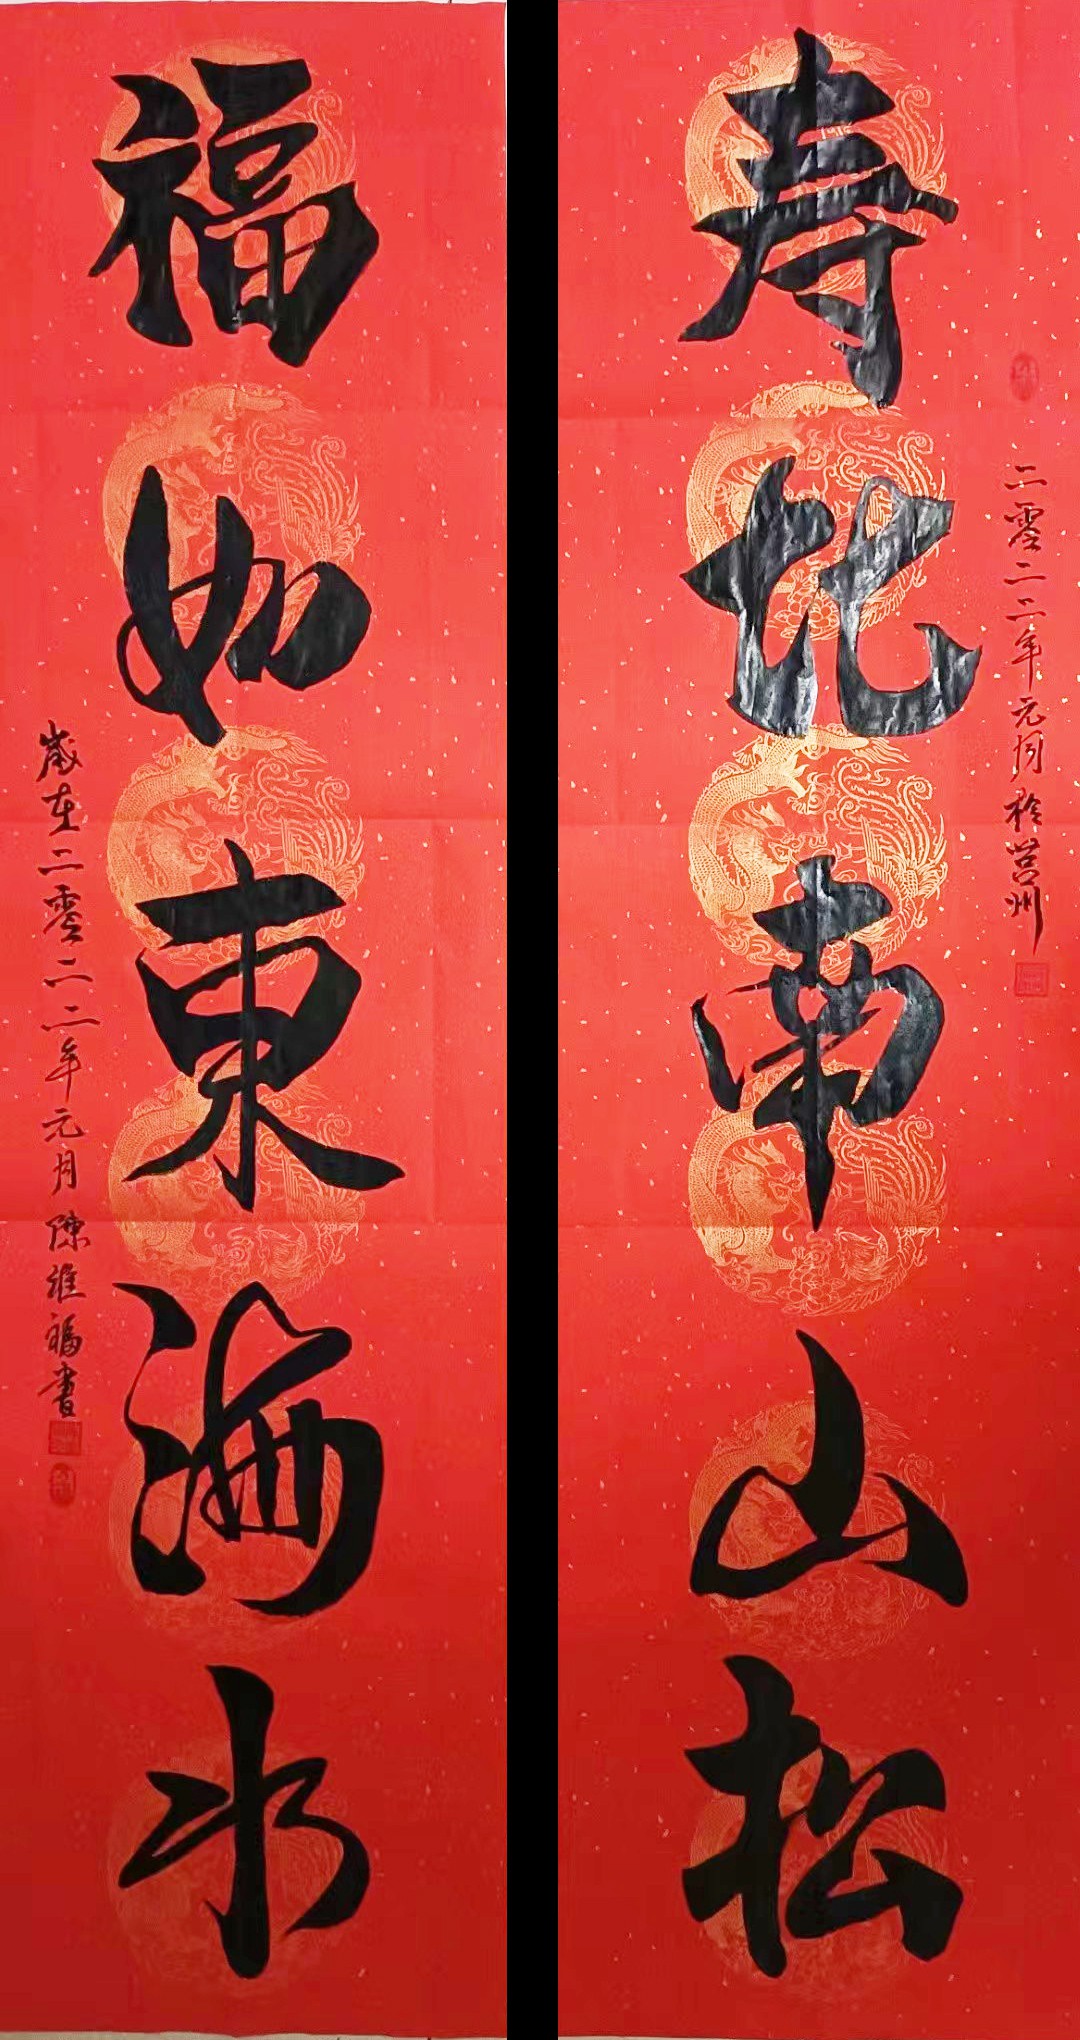 寿比南山松
二零二二年元月於莒州
福如東海水
歲在二零二二年元月陳維福書